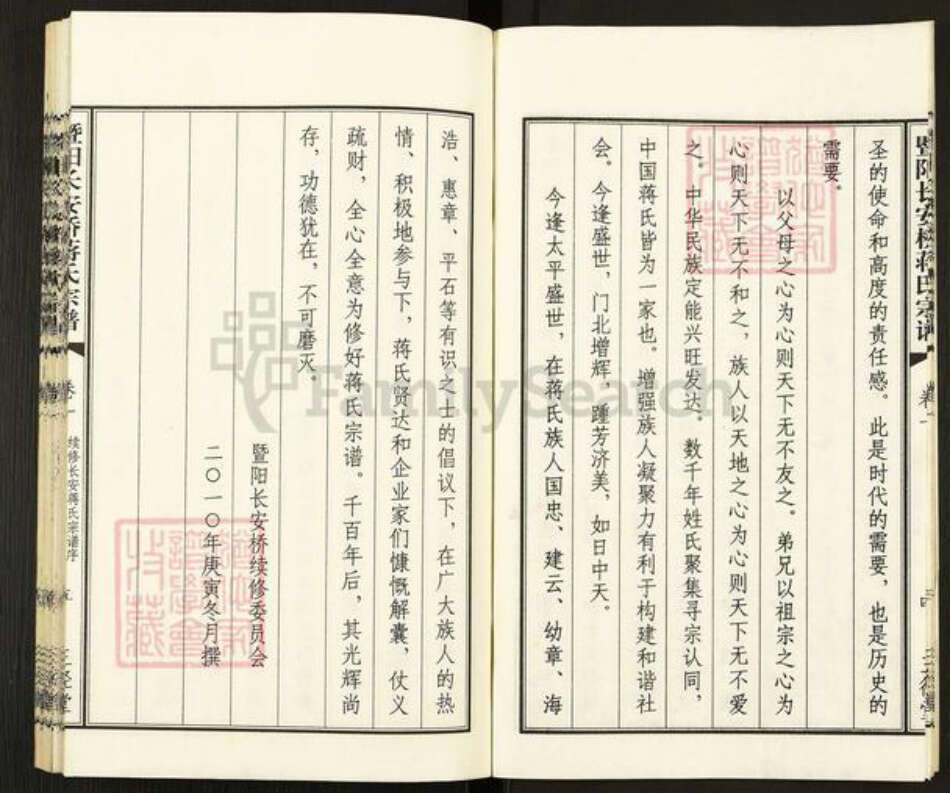 暨阳长安桥蒋氏宗谱
卷一
圣的使命和高度的责任感。此是时代的需要，也是历史的
需要。
以父母之心为心则天下无不友之。弟兄以祖宗之心为
心则天下无不和之，族人以天地之心为心则天下无不爱
之。中华民族定能兴旺发达。数千年姓氏聚集寻宗认同，
中国蒋氏皆为一家也。增强族人凝聚力有利于构建和谐社
会。今逢盛世，门北增辉，踵芳济美，如日中天。
今逢太平盛世，在蒋氏族人国忠、建云、幼章、海
浩、惠章、平石等有识之士的倡议下，在广大族人的热
情、积极地参与下，蒋氏贤达和企业家们慷慨解囊，仗义
疏财，全心全意为修好蒋氏宗谱。千百年后，其光辉尚
存，功德犹在，不可磨灭。
暨阳长安桥续修委员会
二〇一〇年庚寅冬月撰
暨阳长安桥蒋氏宗谱
卷一
续修长安蒋氏宗谱序
五
三径堂
FamilySearch